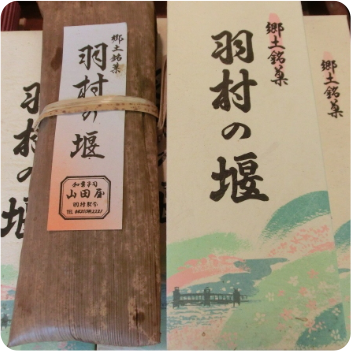 郷土銘菓
羽村の堰
和菓子司
山田屋
郷土銘菓
羽村の堰
郷土銘菓
羽村の